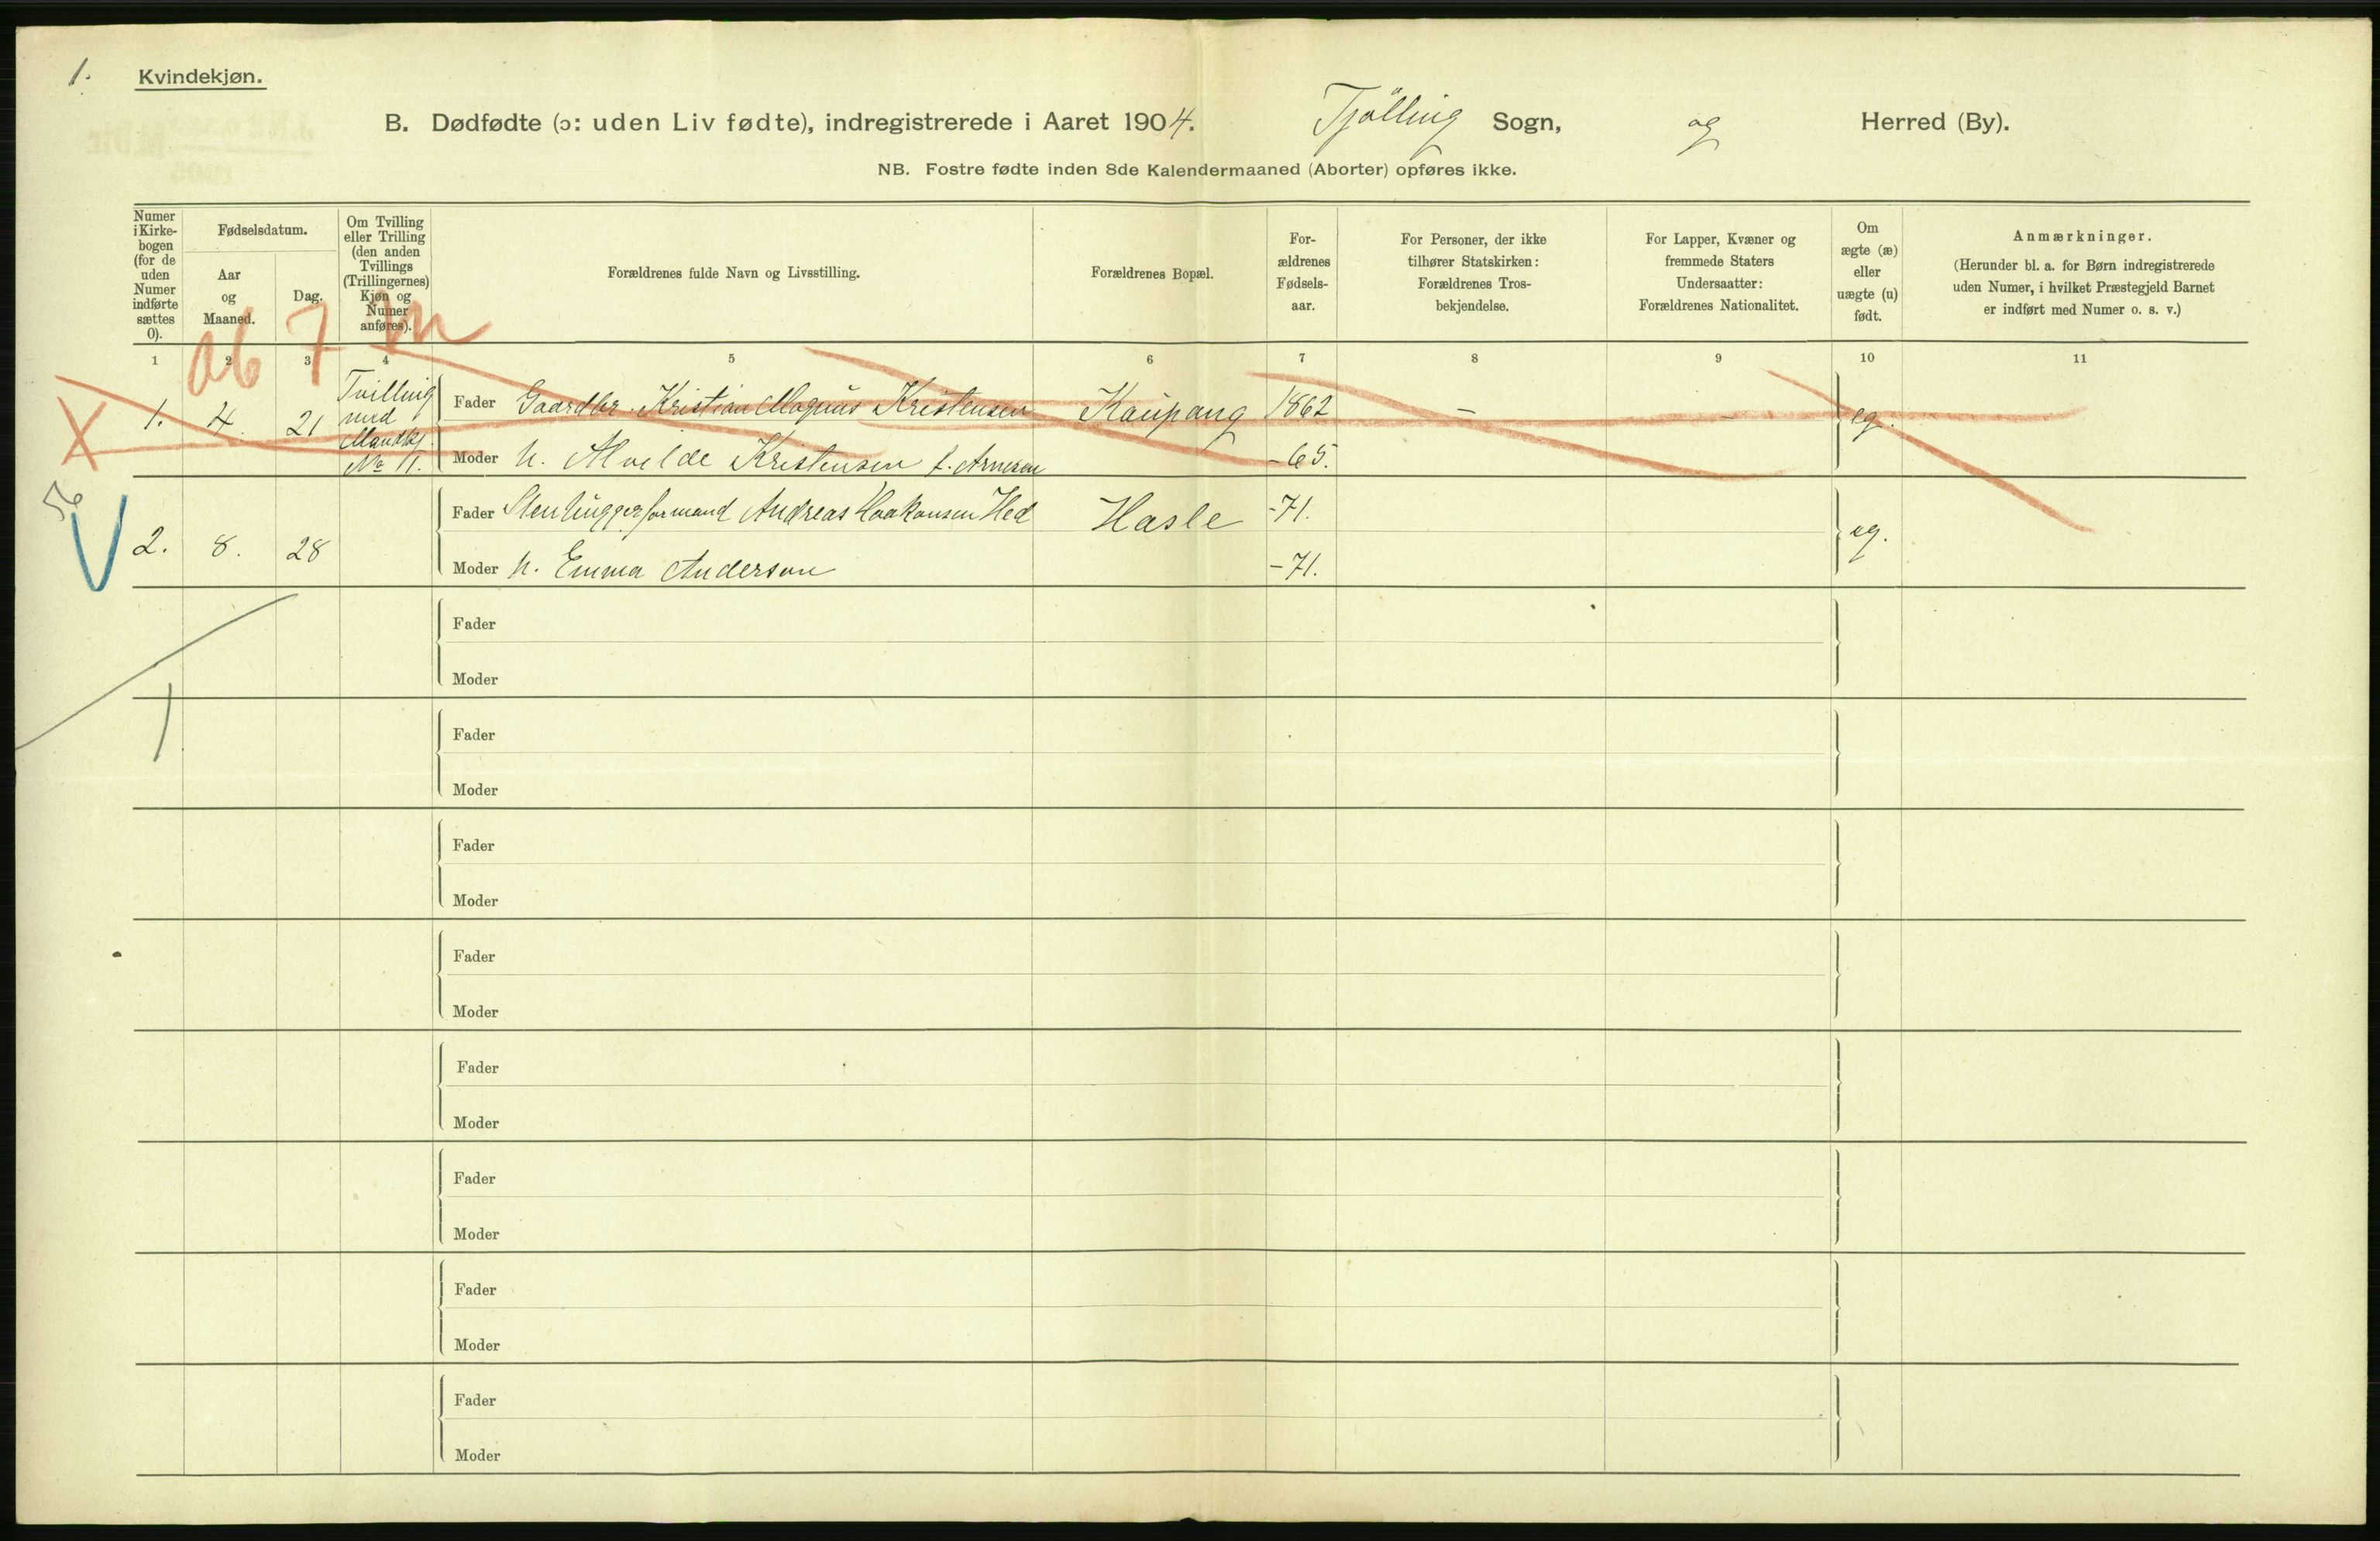 1. Kvindekjøn.
B. Dødfødte (ɔ: uden Liv fødte), indregistrerede i Aaret 1904. Tjølling Sogn, og Herred (By).
NB. Fostre fødte inden 8de Kalendermaaned (Aborter) opføres ikke.
Numer i Kirke-bogen (for de uden Numer indførte sættes 0).
Fødselsdatum.
Aar og Maaned.
Dag.
Om Tvilling eller Trilling (den anden Tvillings (Trillingernes) Kjøn og Numer anføres).
Forældrenes fulde Navn og Livsstilling.
Forældrenes Bopæl.
For-ældrenes Fødsels-aar.
For Personer, der ikke tilhører Statskirken: Forældrenes Tros-bekjendelse.
For Lapper, Kvæner og fremmede Staters Undersaatter: Forældrenes Nationalitet.
Om ægte (æ) eller uægte (u) født.
Anmærkninger.
(Herunder bl. a. for Børn indregistrerede uden Numer, i hvilket Præstegjeld Barnet er indført med Numer o. s. v.)
ab 7 m
1 2 3 4 5 6 7 8 9 10 11
X 1. 4. 21 Tvilling med Mandkj. No 11. Fader Gaardbr. Kristian Magnus Kristensen Kaupang 1862 – – eg.
Moder h. Alvilde Kristensen f. Arnesen – 65.
V 2. 8. 28 Fader Stenhuggerformand Andreas Haakonsen Hed Hasle – 71. eg.
Moder h. Emma Anderson – 71.
Fader
Moder
Fader
Moder
Fader
Moder
Fader
Moder
Fader
Moder
Fader
Moder
Fader
Moder
Fader
Moder